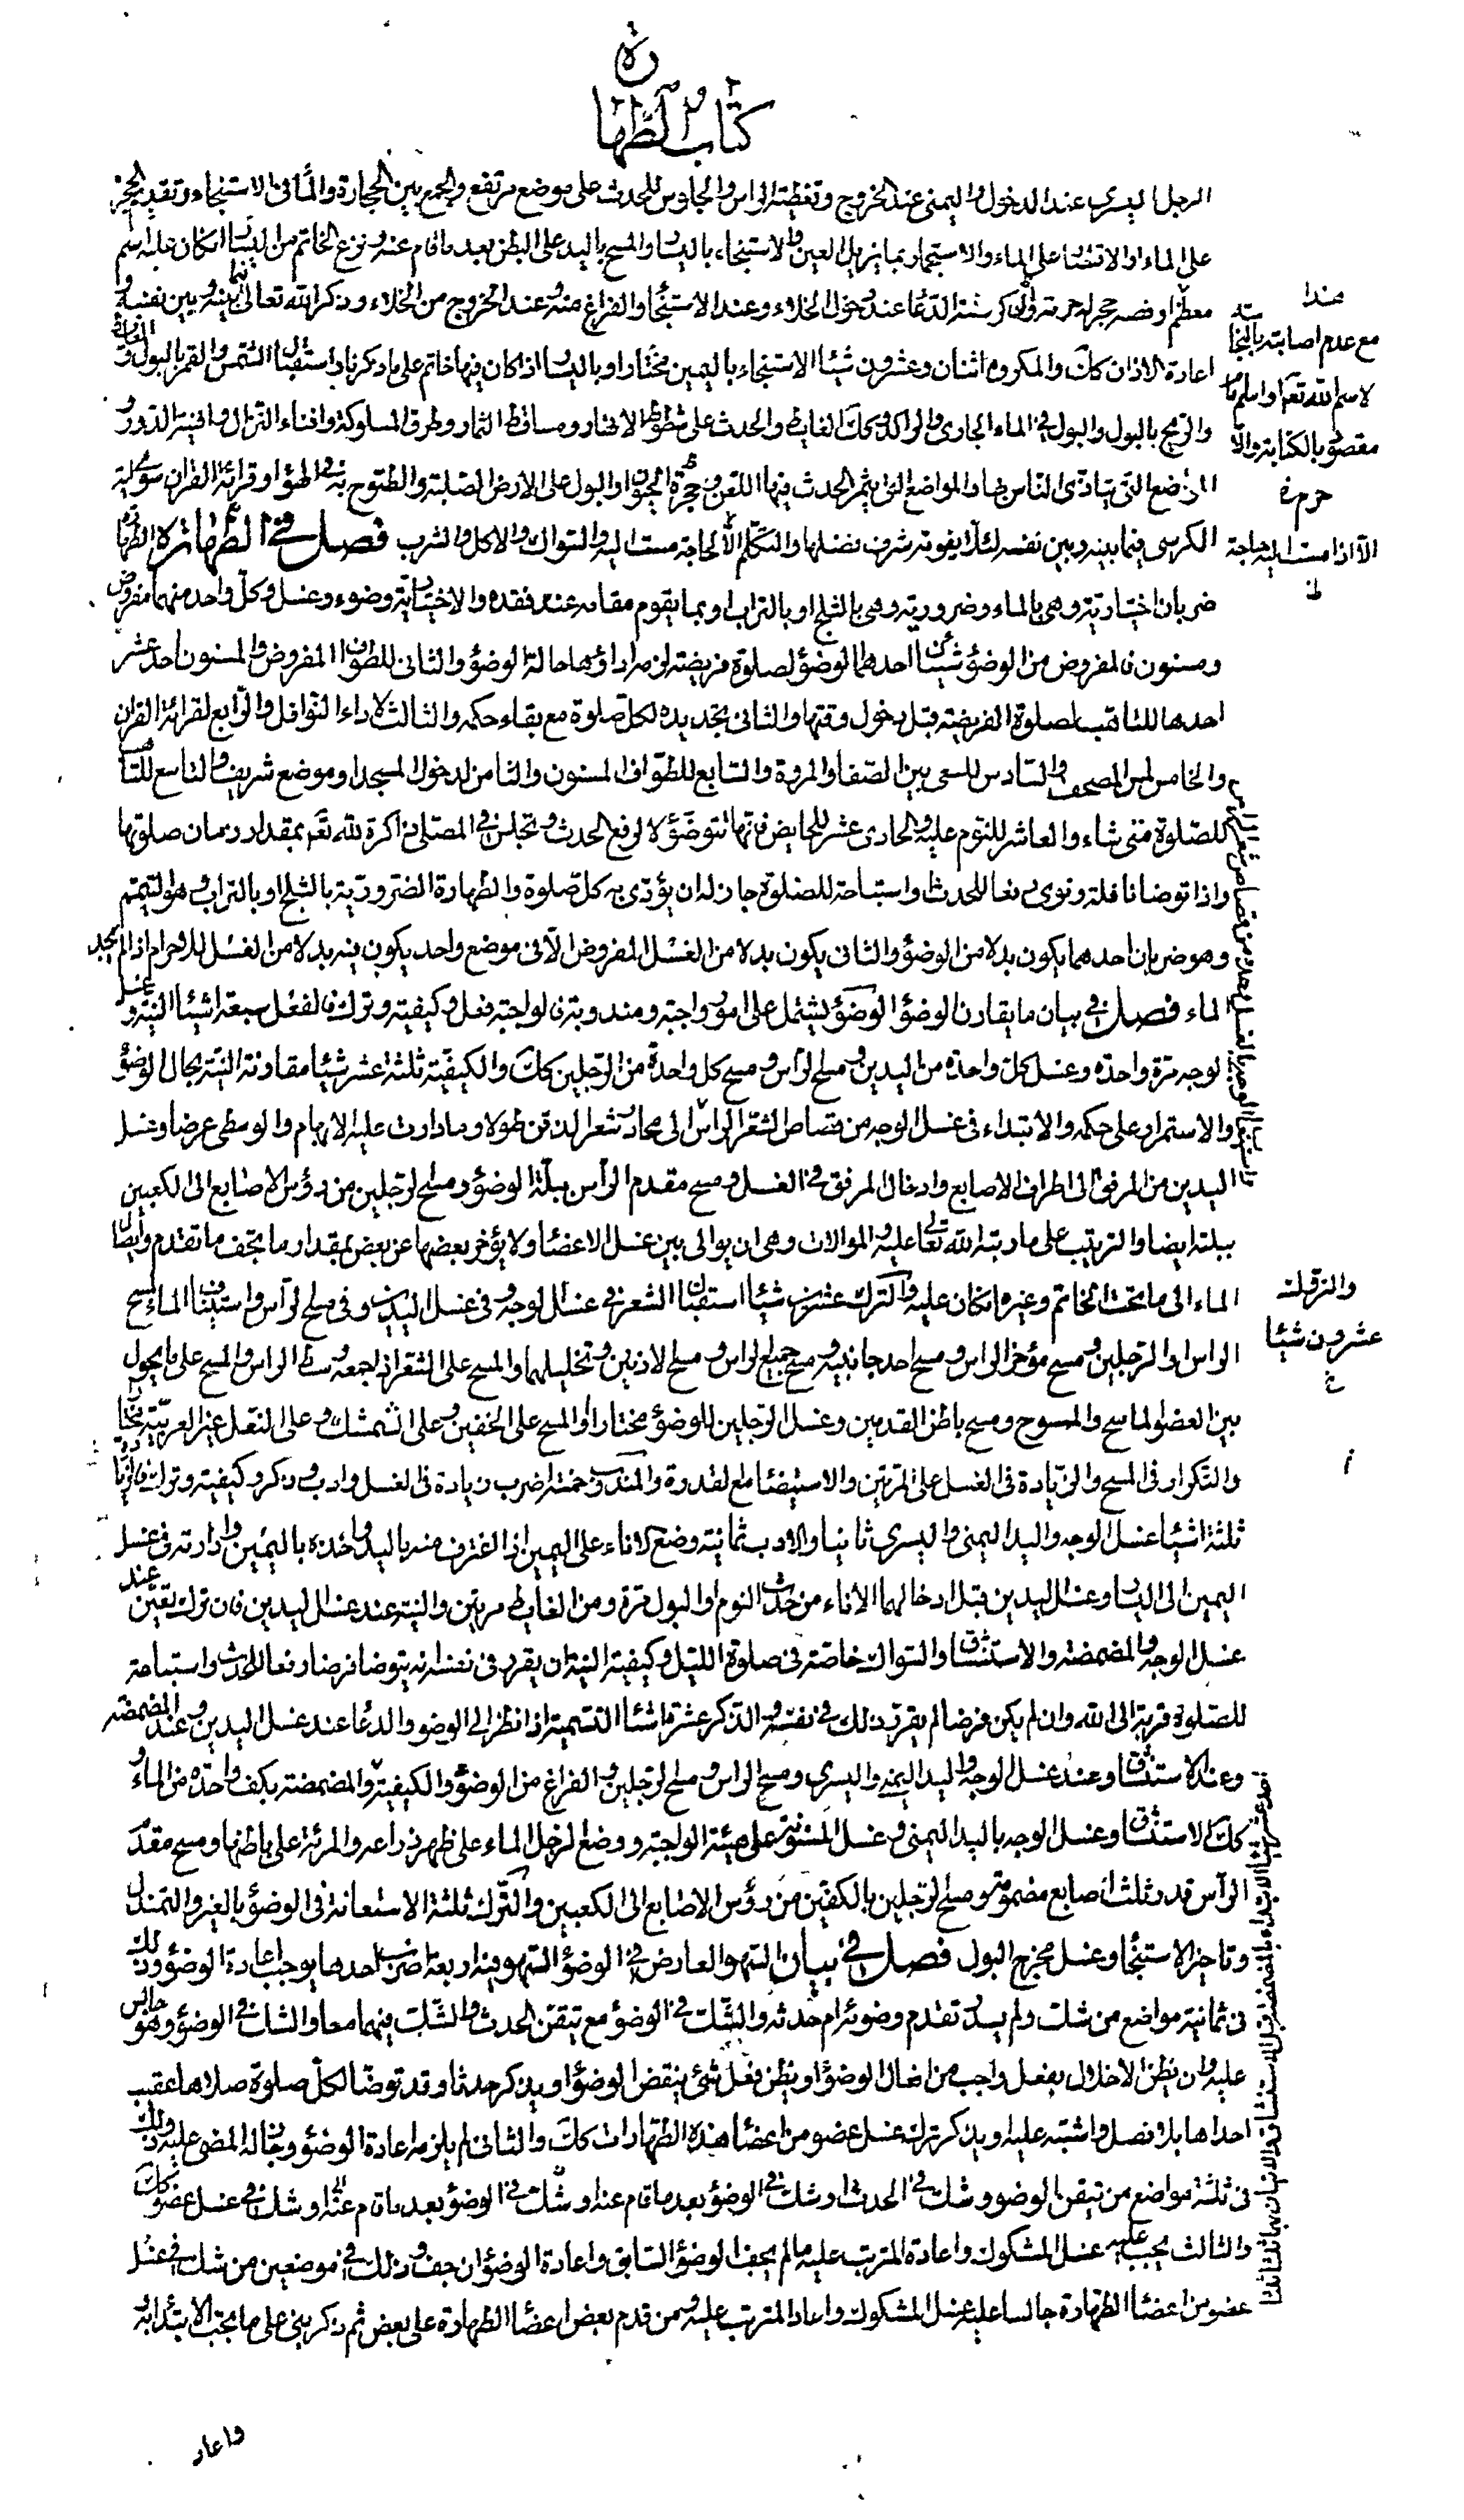 كتاب الطهارة
الرجل اليسرى عند الدخول واليمنى عند الخروج وتغطية الراس والجلوس للحدث على موضع مرتفع والجمع بين الحجارة والماء فى الاستنجاء وتقديم الحجر
على الماء او الاقتصار على الماء والاستجمار بما يزيل العين والاستنجاء باليسار والمسح باليد على البطن بعد ما قام عنه ونزع الخاتم من اليسار ان كان عليه اسم
معظم او فصه حجر له حرمة والذكر ستة الدعا عند دخول الخلاء وعند الاستنجا والفراغ منه وعند الخروج من الخلاء وذكر الله تعالى فيما بينه وبين نفسه و
اعادة الاذان كك والمكروه اثنان وعشرون شيئا الاستنجاء باليمين مختارا وباليسار اذا كان فيها خاتم على ما ذكرنا واستقبال الشمس والقمر بالبول والغائط
والريح بالبول والبول فى الماء الجارى والراكد وكك الغايط والحدث على شطوط الانهار ومساقط الثمار وطرق المسلوكة وافناء النزال وافنية الدور و
المواضع التى يتاذى الناس بها والمواضع التى يثمر الحدث فيها اللعن وجحرة الحيوان والبول على الارض الصلبة والطموح به فى الهواء وقرائة القران سوى اية
الكرسى فيما بينه وبين نفسه لئلا يفوته شرف فضلها والتكلم الا لحاجة مست اليه والسواك والاكل والشرب فصل فى الطهارة الطهارة
ضربان اختيارية وهى بالماء وضرورية وهى بالثلج او بالتراب او بما يقوم مقامه عند فقده والاختيارية وضوء وغسل وكل واحد منهما مفروض
ومسنون فالمفروض من الوضوء شيئان احدهما الوضوء لصلوة فريضة لزمه اداؤها حالة الوضوء والثانى للطواف المفروض والمسنون احد عشر
احدها للتاهب لصلوة الفريضة قبل دخول وقتها والثانى تجديده لكل صلوة مع بقاء حكمه والثالث لاداء النوافل والرابع لقرائة القران
والخامس لمس المصحف والسادس للسعى بين الصفا والمروة والسابع للطواف المسنون والثامن لدخول المسجد او موضع شريف والتاسع للتاهب
للصلوة متى شاء والعاشر للنوم عليه والحادى عشر للحايض فانها تتوضؤ لا لرفع الحدث وتجلس فى المصلى ذاكرة لله تعم بمقدار زمان صلوتها
واذا توضا نافلة ونوى رفعا للحدث او استباحة للصلوة جاز له ان يؤدى به كل صلوة والطهارة الضرورية بالثلج او بالتراب وهو التيمم
وهو ضربان احدهما يكون بدلا من الوضوء والثانى يكون بدلا من الغسل المفروض الا فى موضع واحد يكون فيه بدلا من الغسل للاحرام اذا لم يجد
الماء فصل فى بيان ما يقارن الوضوء الوضوء يشتمل على امور واجبة ومندوبة فالواجبة فعل وكيفية وترك فالفعل سبعة اشيئا النية وغسل
الوجه مرة واحدة وغسل كل واحدة من اليدين ومسح الراس ومسح كل واحدة من الرجلين كك والكيفية ثلثة عشر شيئا مقارنة النية بحال الوضوء
والاستمرار على حكمه والابتداء فى غسل الوجه من قصاص الشعر الراس الى محادر شعر الذقن طولا وما دارت عليه الابهام والوسطى عرضا وغسل
اليدين من المرفق الى اطراف الاصابع وادخال المرفق فى الغسل ومسح مقدم الراس ببلة الوضوء ومسح الرجلين من رؤس الاصابع الى الكعبين
ببلته ايضا والترتيب على ما رتبه الله تعالى عليه والموالات وهى ان يوالى بين غسل الاعضا ولا يؤخر بعضها عن بعض بمقدار ما يجف ما تقدم وايصال
الماء الى ما تحت الخاتم وغيره ان كان عليه والترك عشرون شيئا استقبال الشعر فى غسل الوجه وفى غسل اليدين وفى مسح الراس واستيناف الماء لمسح
الراس او الرجلين ومسح مؤخر الراس ومسح احد جانبيه ومسح جميع الراس ومسح الاذنين وتخليلهما والمسح على الشعر اذا جمعه وسط الراس والمسح على ما يحول
بين العضو الماسح والممسوح ومسح باطن القدمين وغسل الرجلين للوضوء مختارا والمسح على الخفين وعلى الشمشك وعلى النعل غير العربية مختارا
والتكرار فى المسح والزيادة فى الغسل على المرتين والاستيضا مع القدرة والمندوب خمسة اضرب زيادة فى الغسل وادب وذكر وكيفية وترك فالزيادة
ثلثة اشيئا غسل الوجه واليد اليمنى واليسرى ثانيا والادب ثمانية وضع الاناء على اليمين اذا اغترف منه باليد واخذه باليمين وادارته فى غسل
اليمين الى اليسار وغسل اليدين قبل ادخالهما الاناء من حدث النوم او البول مرة ومن الغايط مرتين والنية عند غسل اليدين فان ترك تعين عند
غسل الوجه والمضمضة والاستنشاق والسواك خاصة فى صلوة الليل وكيفية النية ان يقرر فى نفسه انه يتوضا فرضا رفعا للحدث واستباحة
للصلوة قربة الى الله وان لم يكن فرضا لم يقرر ذلك فى نفسه والذكر عشرة اشيئا التسمية اذا نظر الى الوضوء والدعا عند غسل اليدين وعند المضمضة
وعند الاستنشاق وعند غسل الوجه واليد اليمنى واليسرى ومسح الراس ومسح الرجلين والفراغ من الوضوء والكيفية والمضمضة بكف واحدة من الماء و
كك الاستنشاق وغسل الوجه باليد اليمنى وغسل المسنونة على هيئة الواجبة ووضع الرجل الماء على ظهر ذراعه والمرئة على باطنها ومسح مقدم
الراس قدر ثلث اصابع مضمومة ومسح الرجلين بالكفين من رؤس الاصابع الى الكعبين والترك ثلثة الاستعانة فى الوضوء بالغير والتمندل
وتاخير الاستنجا وغسل مخرج البول فصل فى بيان السهو العارض فى الوضوء السهو فيه اربعة اضرب احدها يوجب اعادة الوضوء وذلك
فى ثمانية مواضع من شك ولم يدر تقدم وضوئه ام حدثه والشك فى الوضوء مع تيقن الحدث والشك فيهما معا والشك فى الوضوء وهو جالس
عليه وان يظن الاخلال بفعل واجب من افعال الوضوء او يظن فعل شئ ينقض الوضوء او يذكر حدثا وقد توضا لكل صلوة صلاها عقيب
احداها بلا فصل واشتبه عليه او يذكر ترك غسل عضو من اعضا هذه الطهارات كك والثانى لم يلزمه اعادة الوضوء وجاز له المضى عليه وذلك
فى ثلثة مواضع من تيقن الوضوء وشك فى الحدث او شك فى الوضوء بعد ما قام عنه او شك فى غسل عضو كك
والثالث يجب عليه غسل المشكوك واعادة المترتب عليه ما لم يجف الوضوء السابق واعادة الوضوء ان جف وذلك فى موضعين من شك فى غسل
عضو من اعضا الطهارة جالسا عليه غسل المشكوك واعاد المترتب عليه ومن قدم بعض اعضا الطهارة على بعض ثم ذكر بنى على ما يجب الابتدا به
واعاد
هذا
مع عدم اصابته بالنجاسة
مقصود بالكتابة والا
حرم
الا اذا مست اليه حاجة
والترك له
عشرون شيئا